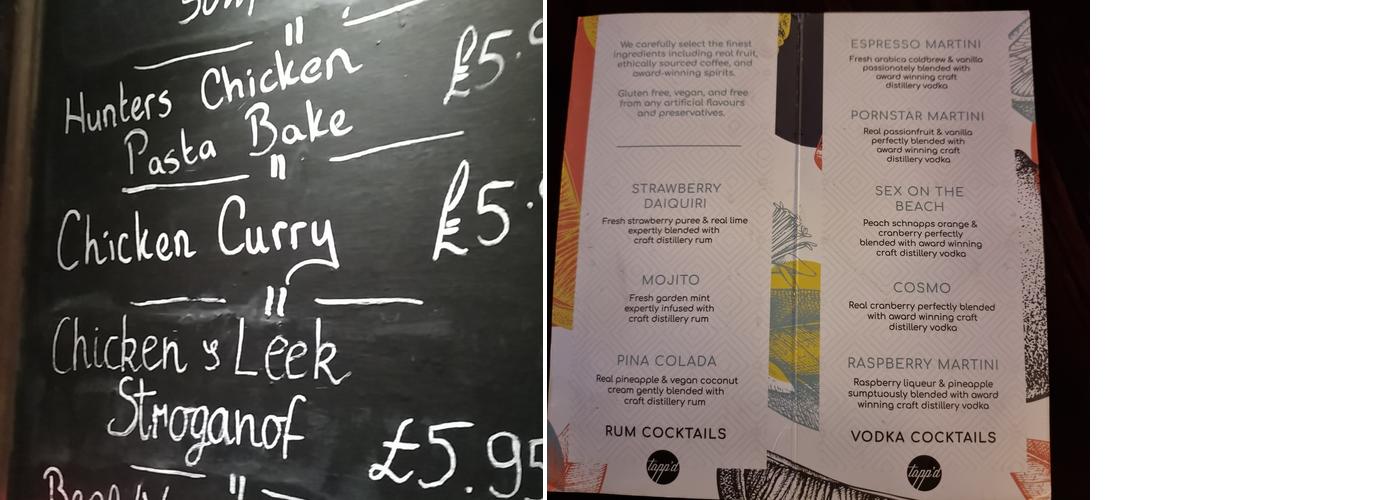 Hunters Chicken
Pasta Bake
£5.9
"
Chicken Curry
£5.
"
Chicken & Leek
Stroganof
£5.95
"
We carefully select the finest
ingredients including real fruit,
ethically sourced coffee, and
award-winning spirits.
Gluten free, vegan, and free
from any artificial flavours
and preservatives.
STRAWBERRY
DAIQUIRI
Fresh strawberry puree & real lime
expertly blended with
craft distillery rum
MOJITO
Fresh garden mint
expertly infused with
craft distillery rum
PINA COLADA
Real pineapple & vegan coconut
cream gently blended with
craft distillery rum
RUM COCKTAILS
tapp'd
ESPRESSO MARTINI
Fresh arabica coldbrew & vanilla
passionately blended with
award winning craft
distillery vodka
PORNSTAR MARTINI
Real passionfruit & vanilla
perfectly blended with
award winning craft
distillery vodka
SEX ON THE
BEACH
Peach schnapps orange &
cranberry perfectly
blended with award winning
craft distillery vodka
COSMO
Real cranberry perfectly blended
with award winning craft
distillery vodka
RASPBERRY MARTINI
Raspberry liqueur & pineapple
sumptuously blended with award
winning craft distillery vodka
VODKA COCKTAILS
tapp'd